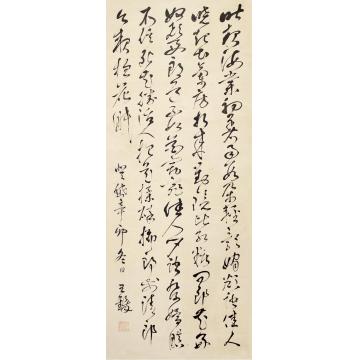 昨夜海棠初着雨數朵輕盈嬌欲語佳人
曉起出蘭房折來對鏡比紅粧問郎花好
奴顏好郎道不如花窈窕佳人聞語發嬌嗔
不信死花勝活人揉碎擲郎前請郎
今夜伴花眠 辛卯冬日 王